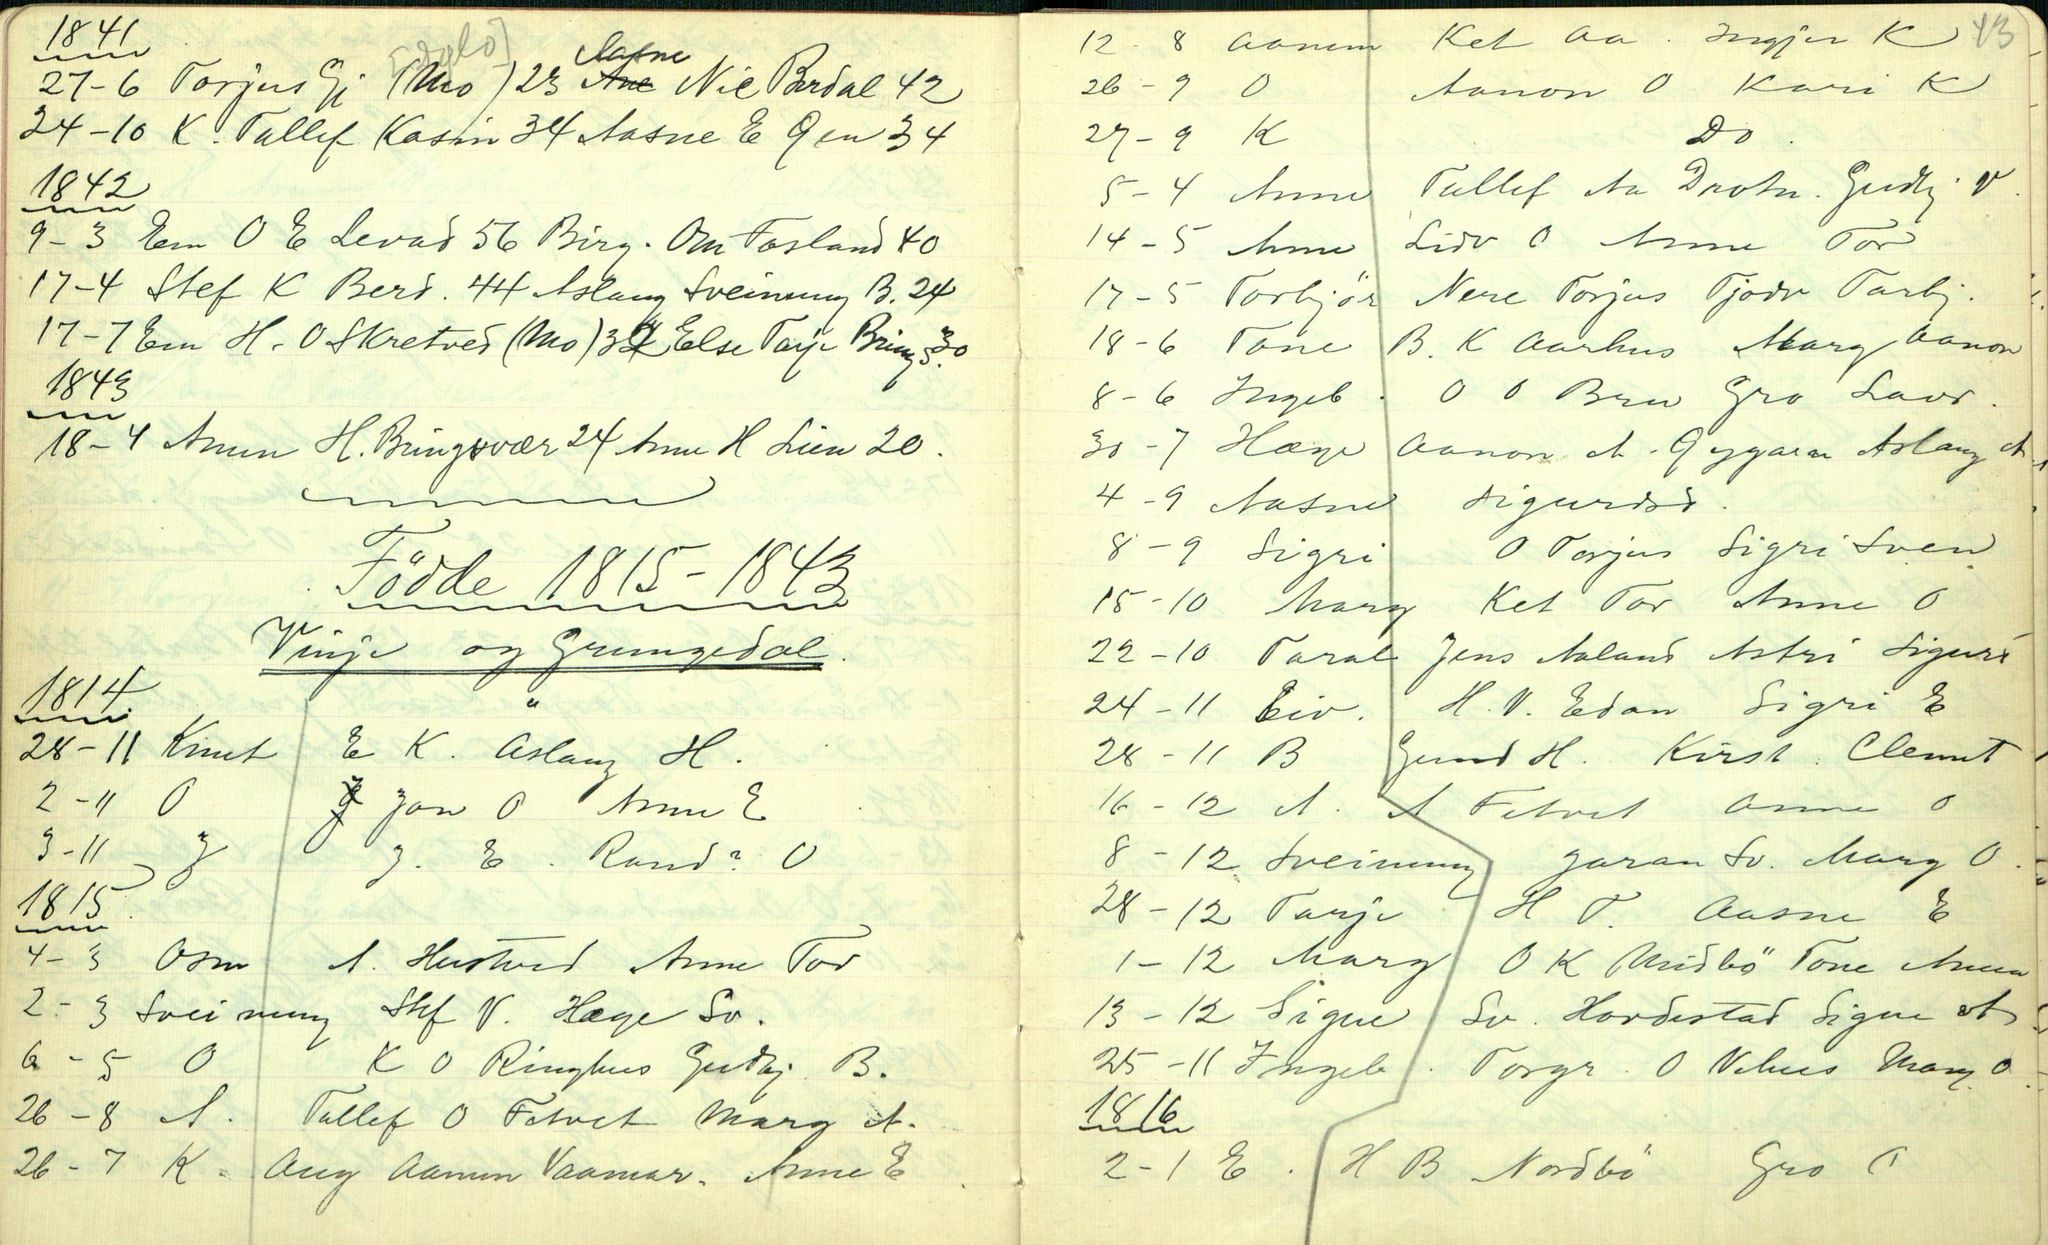 1841
27-6 Torjus Gj (Mo) 23 Aasne Nil Berdal 42
24-10 K. Tallef Kosin 34 Aasne E Qen 34
1842
9-3 Em O E Levad 56 Birg. Om Fosland 40
17-4 Stef K Berd. 44 Aslaug Sveinung B. 24
17-7 Em H. O Skretved (Mo) 32 Else Tarje Bringsv. 30
1843
18-4 Amun H. Bringsvær 24 Anne H Lien 20.
Födde 1815-1843
Vinje og Grungedal.
1814
28-11 Knut E K. Aslaug H.
2-11 O Jon O Anne E
3-11 J J. E. Rand? O
1815
4-3 Osm A. Hustved Anne Tor
2-3 Sveinung Stef V. Hæge Sv.
6-5 O K O Ringhus Gudbj. B.
26-8 A. Tallef O Fetvet Marg A.
26-7 K. Aug Aamun Vaamar. Anne E
43
12-8 Aanun Ket Aa. Ingjer K
26-9 O Aanon O Kari K
27-9 K Do.
5-4 Anne Tallef Aa Drotn. Gudbj. V.
14-5 Anne Lidv O Anne Tor
17-5 Torbjör Nere Torjus Tjodv Torbj.
18-6 Tone B. K Aarhus Marg Aanon
8-6 Ingeb. O O Bru Gro Lavr.
30-7 Hæge Aanon A. Gygarn Aslaug A
4-9 Aasne Sigurdsd.
8-9 Sigri O Torjus Sigri Sven
15-10 Marg Ket Tor Anne O
22-10 Taral Jens Aaland Astri Sigurd
24-11 Eiv. H. V. Edan Sigri E
28-11 B Gund H. Kirst. Clemet
16-12 A. A Fetvet Anne O
8-12 Sveinung Jaran Sv. Marg O.
28-12 Tarje H T. Aasne E
1-12 Marg O K Midbö Tone Amun
13-12 Signe Sv. Hordestad Signe A
25-11 Ingeb. Torgr. O Vehus Marg O.
1816
2-1 E. H B Nordbö Gro T